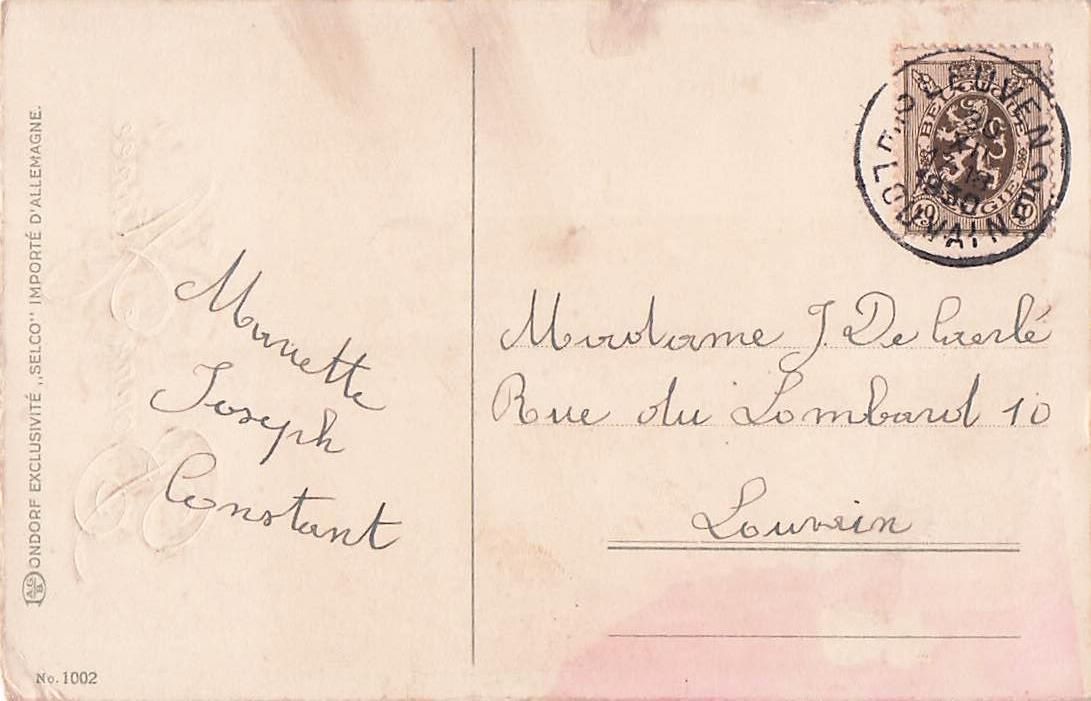 ONDORF EXCLUSIVITÉ „SELCO” IMPORTÉ D'ALLEMAGNE.
No. 1002
Mariette
Joseph
Constant
LEUVEN
LOUVAIN
1930
BELGIQUE
BELGIË
Madame J. De
Rue du Lombard 10
Louvain